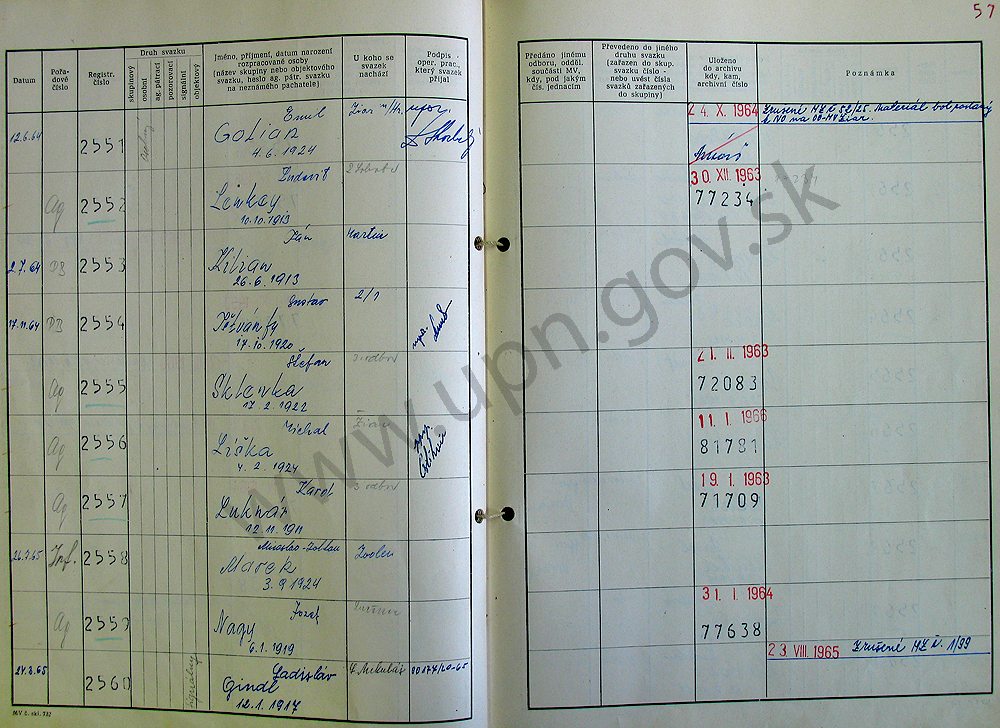 57
Datum
Pořa-
dové
číslo
Registr.
číslo
Druh svazku
skupinový
osobní
ag. pátrací
pozorovací
signální
objektový
Jméno, příjmení, datum narození
rozpracované osoby
(název skupiny nebo objektového
svazku, heslo ag. pátr. svazku
na neznámého pachatele)
U koho se
svazek
nachází
Podpis
oper. prac.,
který svazek
přijal
Předáno jinému
odboru, odděl.
součásti MV,
kdy, pod jakým
čís. jednacím
Převedeno do jiného
druhu svazku
(zařazen do skup.
svazku číslo -
nebo uvést čísla
svazků zařazených
do skupiny)
Uloženo
do archivu
kdy, kam,
archivní číslo
Poznámka
12.6.64 2551 Emil
Golian
4. 6. 1924
24. X. 1964
Ag 2552 Ľudovít
Lenkay
10.10.1913
30. XII. 1963
77234
2.7.64 PB 2553 Ján Martin
Kilian
26. 6. 1913
17.11.64 PB 2554 Gustav 2/1
Ištvánfy
17. 10. 1920
Ag 2555 Štefan 3. odbor
Sklenka
17. 2. 1922
21. II. 1963
72083
Ag 2556 Michal Žiar
Líška
4. 2. 1924
11. I. 1966
81781
Ag 2557 Karol 3 odbor
Luknár
12. 11. 1911
19. I. 1963
71709
26.7.65 Inf. 2558 Miroslav-Zoltan Zvolen
Marek
3. 9. 1924
Ag 2559 Jozef
Nagy
6.1.1919
31. I. 1964
77638
24.3.65 2560 signálny Ladisláv L. Mikuláš
Gindl
12. 1. 1917
23 VIII. 1965 Zrušené MZ č. 1/99
MV č. skl. 782
www.upn.gov.sk